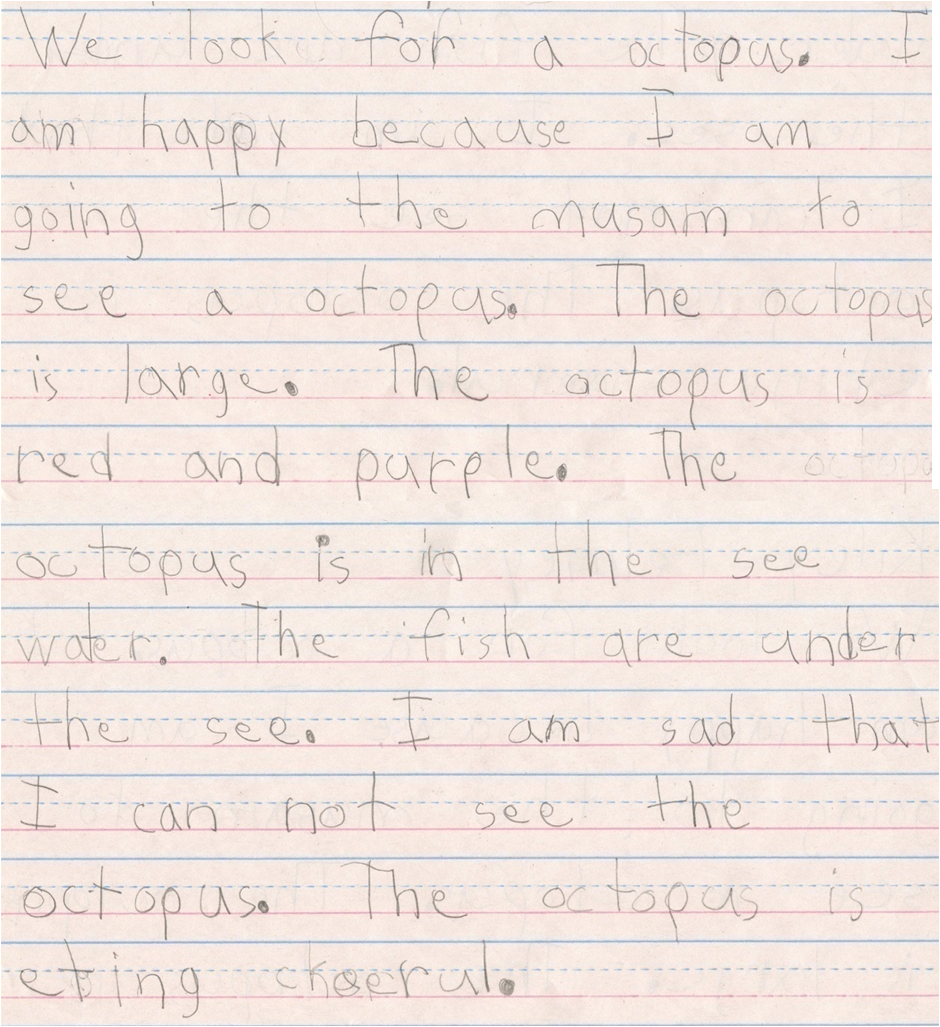 We look for a octopus. I
am happy because I am
going to the musam to
see a octopus. The octopus
is large. The octopus is
red and purple. The
octopus is in the see
water. The fish are under
the see. I am sad that
I can not see the
octopus. The octopus is
eting